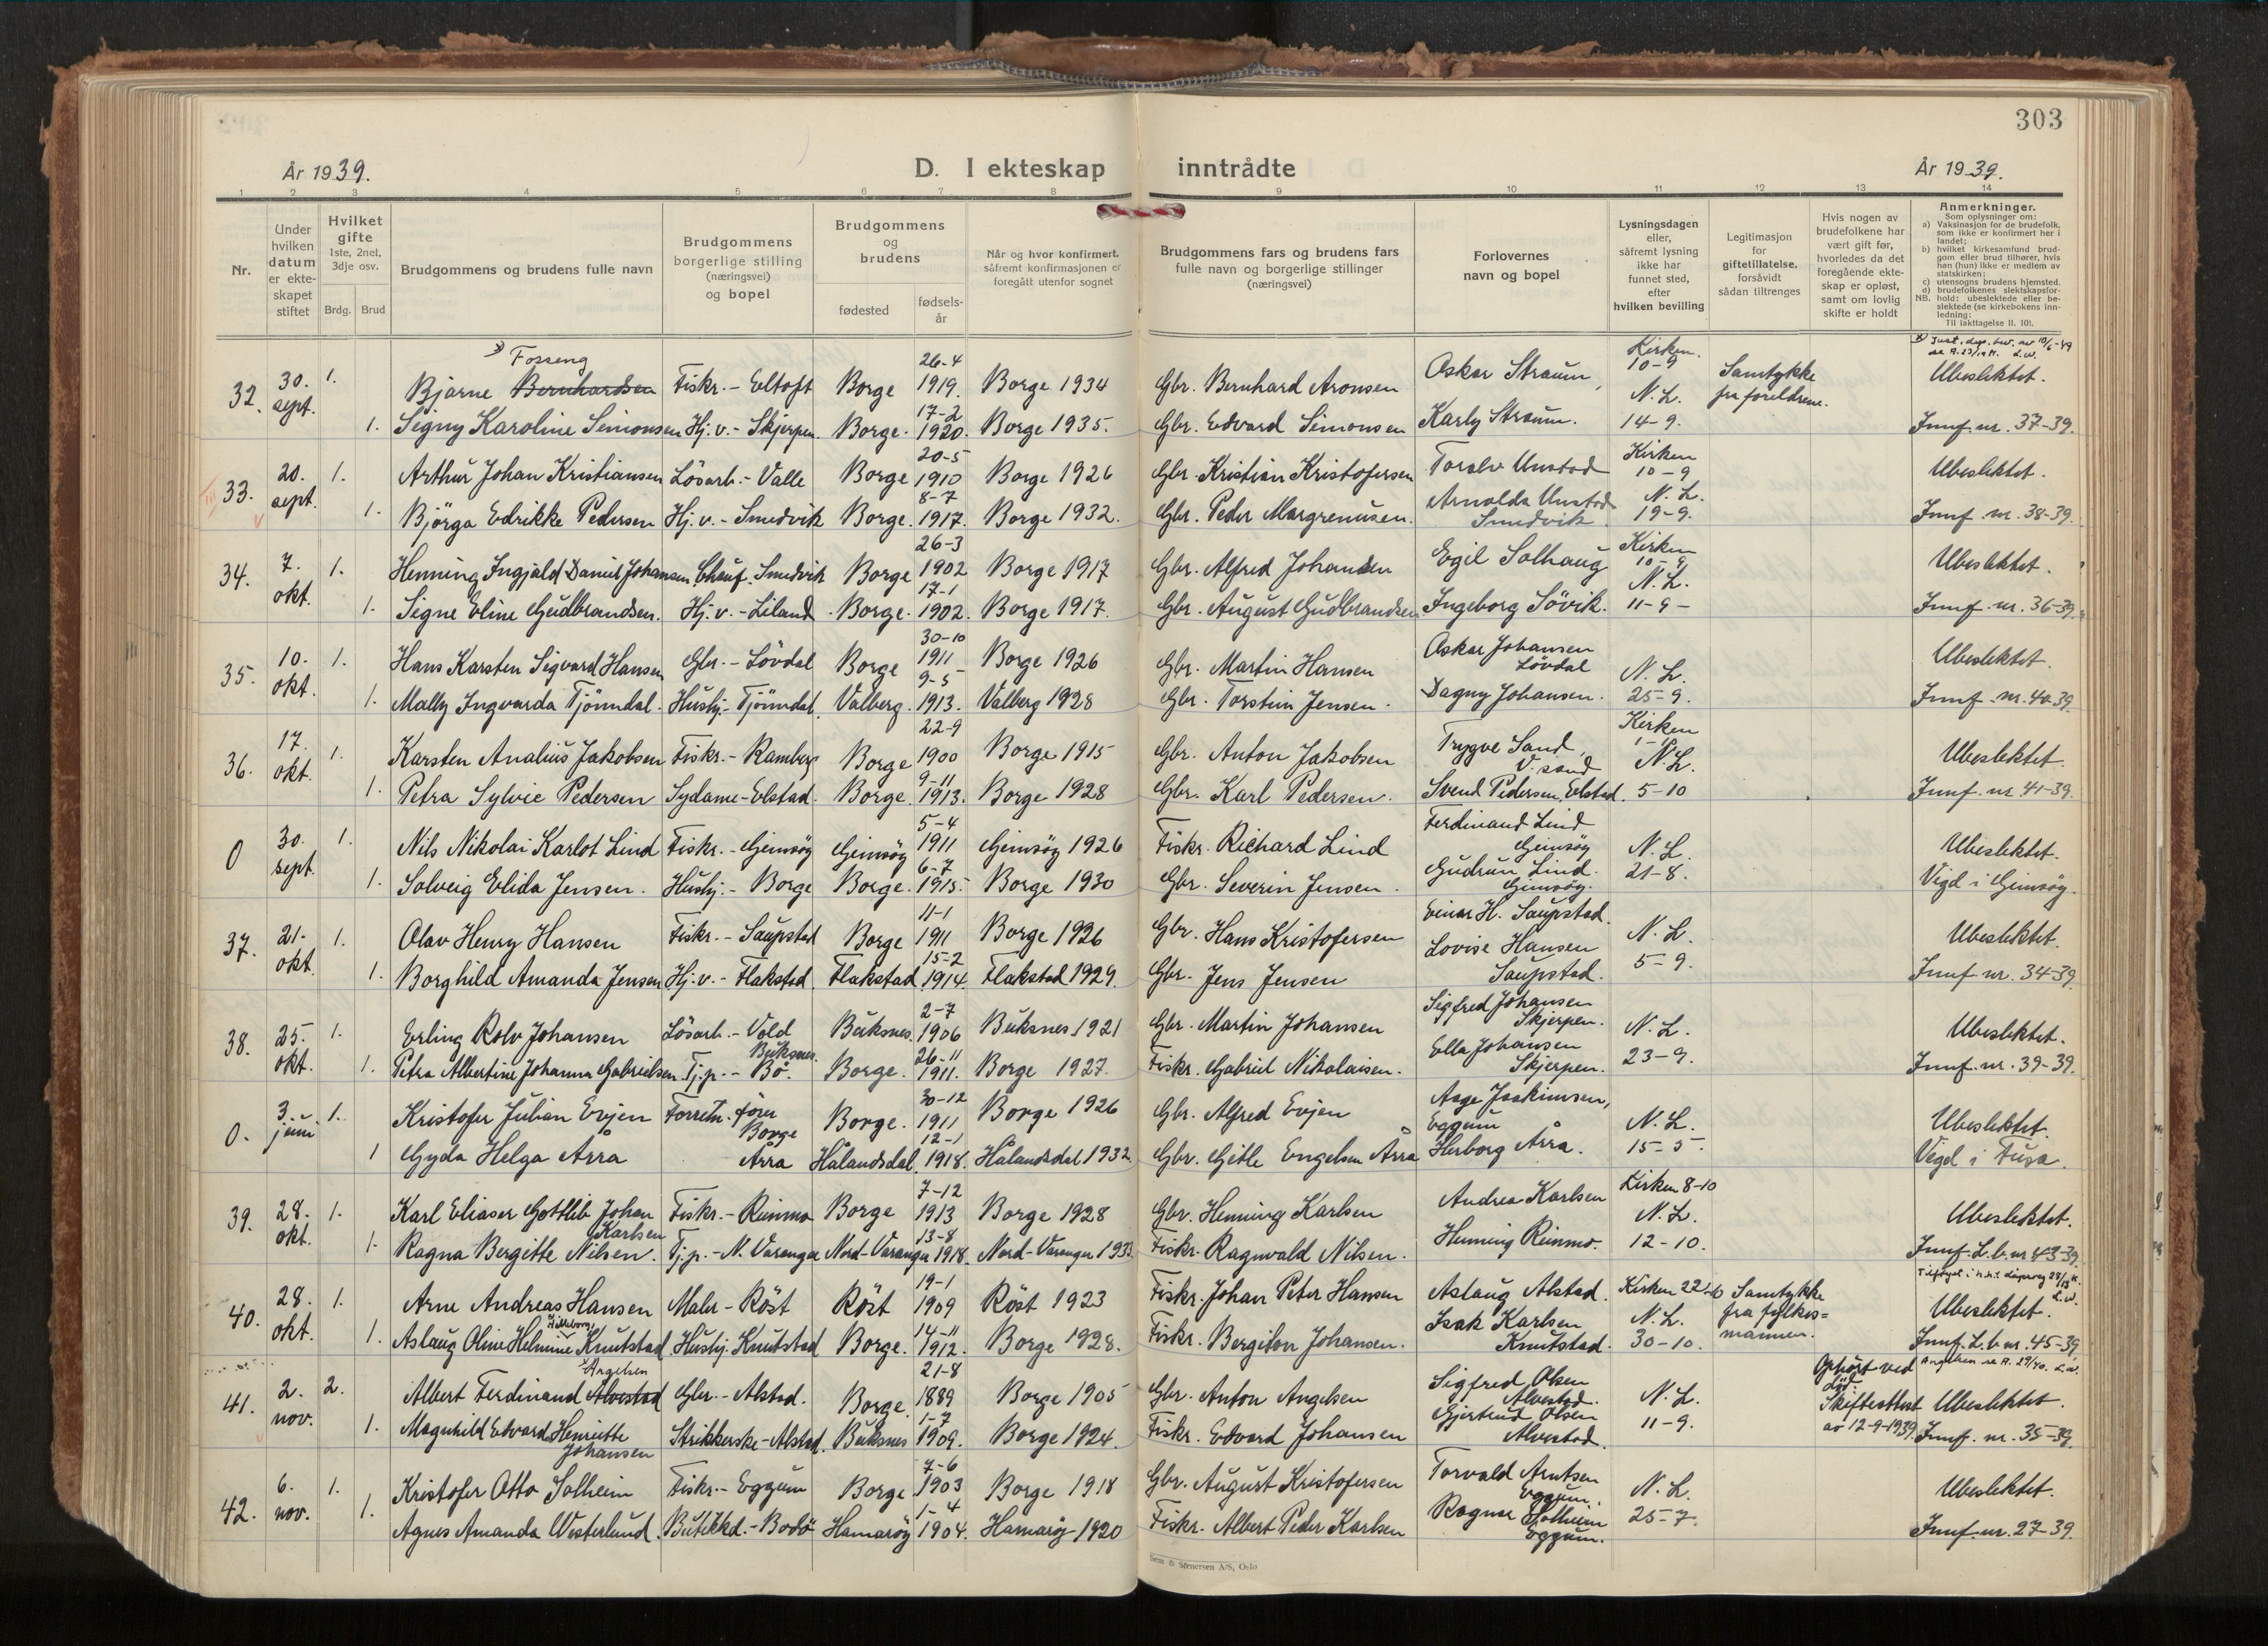 303
År 1939.
D. I ekteskap inntrådte
År 1939.
1 2 3 4 5 6 7 8 9 10 11 12 13 14
Nr.
Under hvilken datum er ekteskapet stiftet
Hvilket gifte 1ste, 2net, 3dje osv.
Brdg. Brud
Brudgommens og brudens fulle navn
Brudgommens borgerlige stilling (næringsvei) og bopel
Brudgommens og brudens
fødested
fødselsår
Når og hvor konfirmert, såfremt konfirmasjonen er foregått utenfor sognet
Brudgommens fars og brudens fars fulle navn og borgerlige stillinger (næringsvei)
Forlovernes navn og bopel
Lysningsdagen eller, såfremt lysning ikke har funnet sted, efter hvilken bevilling
Legitimasjon for giftetillatelse, forsåvidt sådan tiltrenges
Hvis nogen av brudefolkene har vært gift før, hvorledes da det foregående ekteskap er opløst, samt om lovlig skifte er holdt
Anmerkninger.
Som oplysninger om:
a) Vaksinasjon for de brudefolk, som ikke er konfirmert her i landet;
b) hvilket kirkesamfund brudgom eller brud tilhører, hvis han (hun) ikke er medlem av statskirken;
c) utensogns brudens hjemsted.
d) brudefolkenes slektskapsforhold: ubeslektede eller beslektede (se kirkebokens innledning:
NB. Til iakttagelse II. 10).
32. 30. sept. 1. Bjarne Bernhardsen Fosseng Fiskr. - Eltoft Borge 26-4 1919. Borge 1934 Gbr. Bernhard Aronsen Oskar Straum, Kirken. 10-9 Samtykke fra foreldrene. Ubeslektet.
1. Signy Karoline Simonsen Hj.v. - Skjerpen. Borge. 17-2 1920. Borge 1935. Gbr. Edvard Simonsen Karly Straum. N.L. 14-9. Innf. nr. 37-39.
33. 20. sept. 1. Arthur Johan Kristiansen Lösarb. - Valle Borge 20-5 1910 Borge 1926 Gbr. Kristian Kristofersen Toralv Unstad Kirken 10-9 Ubeslektet.
1. Björga Edrikke Pedersen Hj.v. - Smedvik Borge. 8-7 1917. Borge 1932. Gbr. Peder Margrenusen. Arnolda Unstad Smedvik N.L. 19-9. Innf. nr. 38-39.
34. 7. okt. 1. Henning Ingjald Daniel Johansen Chauf. Smedvik Borge 26-3 1902 Borge 1917 Gbr. Alfred Johansen Egil Solhaug Kirken 10-9 Ubeslektet.
1. Signe Eline Gudbrandsen. Hj.v. - Liland Borge. 17-1 1902. Borge 1917. Gbr. August Gudbrandsen Ingeborg Sövik. N.L. 11-9- Innf. nr. 36-39.
35. 10. okt. 1. Hans Karsten Sigvard Hansen Gbr. - Lövdal Borge 30-10 1911 Borge 1926 Gbr. Martin Hansen Oskar Johansen Lövdal Ubeslektet.
1. Mally Ingvarda Tjönndal. Hushj. - Tjönndal. Valberg. 9-5 1913. Valberg 1928 Gbr. Torstein Jensen. Dagny Johansen. N.L. 25-9. Innf. nr. 40-39.
36. 17. okt. 1. Karsten Analius Jakobsen Fiskr. - Ramberg Borge 22-9 1900 Borge 1915 Gbr. Anton Jakobsen Trygve Sand, V. sand Kirken Ubeslektet.
1. Petra Sylvie Pedersen Sydame - Elstad. Borge. 9-11 1913. Borge 1928 Gbr. Karl Pedersen. Svend Pedersen, Elstad. N.L. 5-10 Innf. nr. 41-39.
0 30. sept. 1. Nils Nikolai Karlot Lind Fiskr. - Geimsöy Geimsöy 5-4 1911 Geimsöy 1926 Fiskr. Richard Lind Ferdinand Lind Geimsöy Ubeslektet.
1. Solveig Elida Jensen. Hushj. - Borge Borge. 6-7 1915. Borge 1930 Gbr. Severin Jensen. Gudrun Lind. Gimsöy. N.L. 21-8. Vigd i Gimsöy.
37. 21. okt. 1. Olav Henry Hansen Fiskr. - Saupstad Borge 11-1 1911 Borge 1926 Gbr. Hans Kristofersen Einar H. Saupstad. N.L. Ubeslektet.
1. Borghild Amanda Jensen Hj.v. - Flakstad. Flakstad 15-2 1914. Flakstad 1929. Gbr. Jens Jensen Lovise Hansen Saupstad. 5-9. Innf. nr. 34-39.
38. 25. okt. 1. Erling Rolv Johansen Lösarb. - Vold Buksnes. Buksnes. 2-7 1906 Buksnes 1921 Gbr. Martin Johansen Sigfred Johansen Skjerpen. N.L. Ubeslektet.
1. Petra Albertine Johanna Gabrielsen. Tj.p. - Bö. Borge. 26-11 1911. Borge 1927. Fiskr. Gabriel Nikolaisen. Ella Johansen Skjerpen. 23-9. Innf. nr. 39-39.
0. 3. juni 1. Kristofer Julian Evjen Forretn.förer Borge Borge. 30-12 1911 Borge 1926 Gbr. Alfred Evjen Aage Joakimsen, Eggum N.L. Ubeslektet.
1 Gyda Helga Årra Årra Hålandsdal. 12-1 1918. Hålandsdal 1932. Gbr. Gitle Engelsen Årra Herborg Årra. 15-5. Vigd i Fusa.
39. 28. okt. 1. Karl Eliaser Gottlib Johan Karlsen Fiskr. - Reinmo Borge 7-12 1913 Borge 1928 Gbr. Henning Karlsen Andrea Karlsen Kirken 8-10 Ubeslektet.
1. Ragna Bergitte Nilsen. Tj.p. - N. Varanger Nord-Varanger 13-8 1918. Nord-Varanger 1933. Fiskr. Ragnvald Nilsen. Henning Reinmo. N.L. 12-10. Innf. L.b. nr. 43-39.
40. 28. okt. 1. Arne Andreas Hansen Maler - Röst Röst 19-1 1909 Röst 1923 Fiskr. Johan Peter Hansen Aslaug Alstad. Kirken 22-10 Samtykke fra fylkesmannen. Ubeslektet.
1. Aslaug Oline Helmine Hilleborg Knutstad Hushj. Knutstad Borge. 14-11 1912. Borge 1928. Fiskr. Bergiton Johansen. Isak Karlsen Knutstad. N.L. 30-10. Innf. L.b. nr. 45-39.
41. 2. nov. 2. Albert Ferdinand Alvestad Angelsen Gbr. - Alstad. Borge. 21-8 1889 Borge 1905 Gbr. Anton Angelsen Sigfred Olsen Alvestad. N.L. Ophört ved död. Skifteattest av 12-9-1939. Ubeslektet.
1. Magnhild Edvarda Henriette Johansen Strikkerske - Alstad. Buksnes 1-7 1909. Borge 1924. Fiskr. Edvard Johansen Gjertrud Olsen Alvestad. 11-9. Innf. nr. 35-39.
42. 6. nov. 1. Kristofer Otto Solheim Fiskr. - Eggum Borge 7-6 1903 Borge 1918 Gbr. August Kristofersen Torvald Arntsen Eggum. N.L. Ubeslektet.
1. Agnes Amanda Westerlund. Butikkd. - Bodö Hamaröy 1-4 1904. Hamaröy 1920 Fiskr. Albert Peder Karlsen Ragnar Solheim Eggum. 25-7. Innf. nr. 27-39.
Sem & Stenersen A/S, Oslo